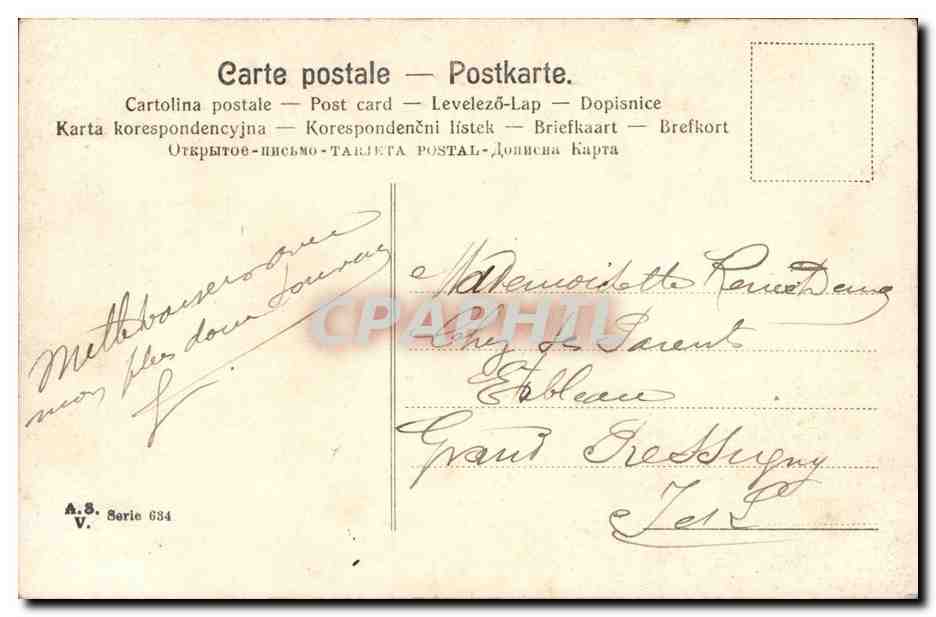 Carte postale — Postkarte.
Cartolina postale — Post card — Levelező-Lap — Dopisnice
Karta korespondencyjna — Korespondenčni lístek — Briefkaart — Brefkort
Открытое-письмо-TARJETA POSTAL-Дописна Карта
Mille baisers avec
mon plus doux
Mademoiselle
Chez ses Parents
Etableau
Grand Pressigny
I et L
СРАРНПЬ
A.S.
V. Serie 634